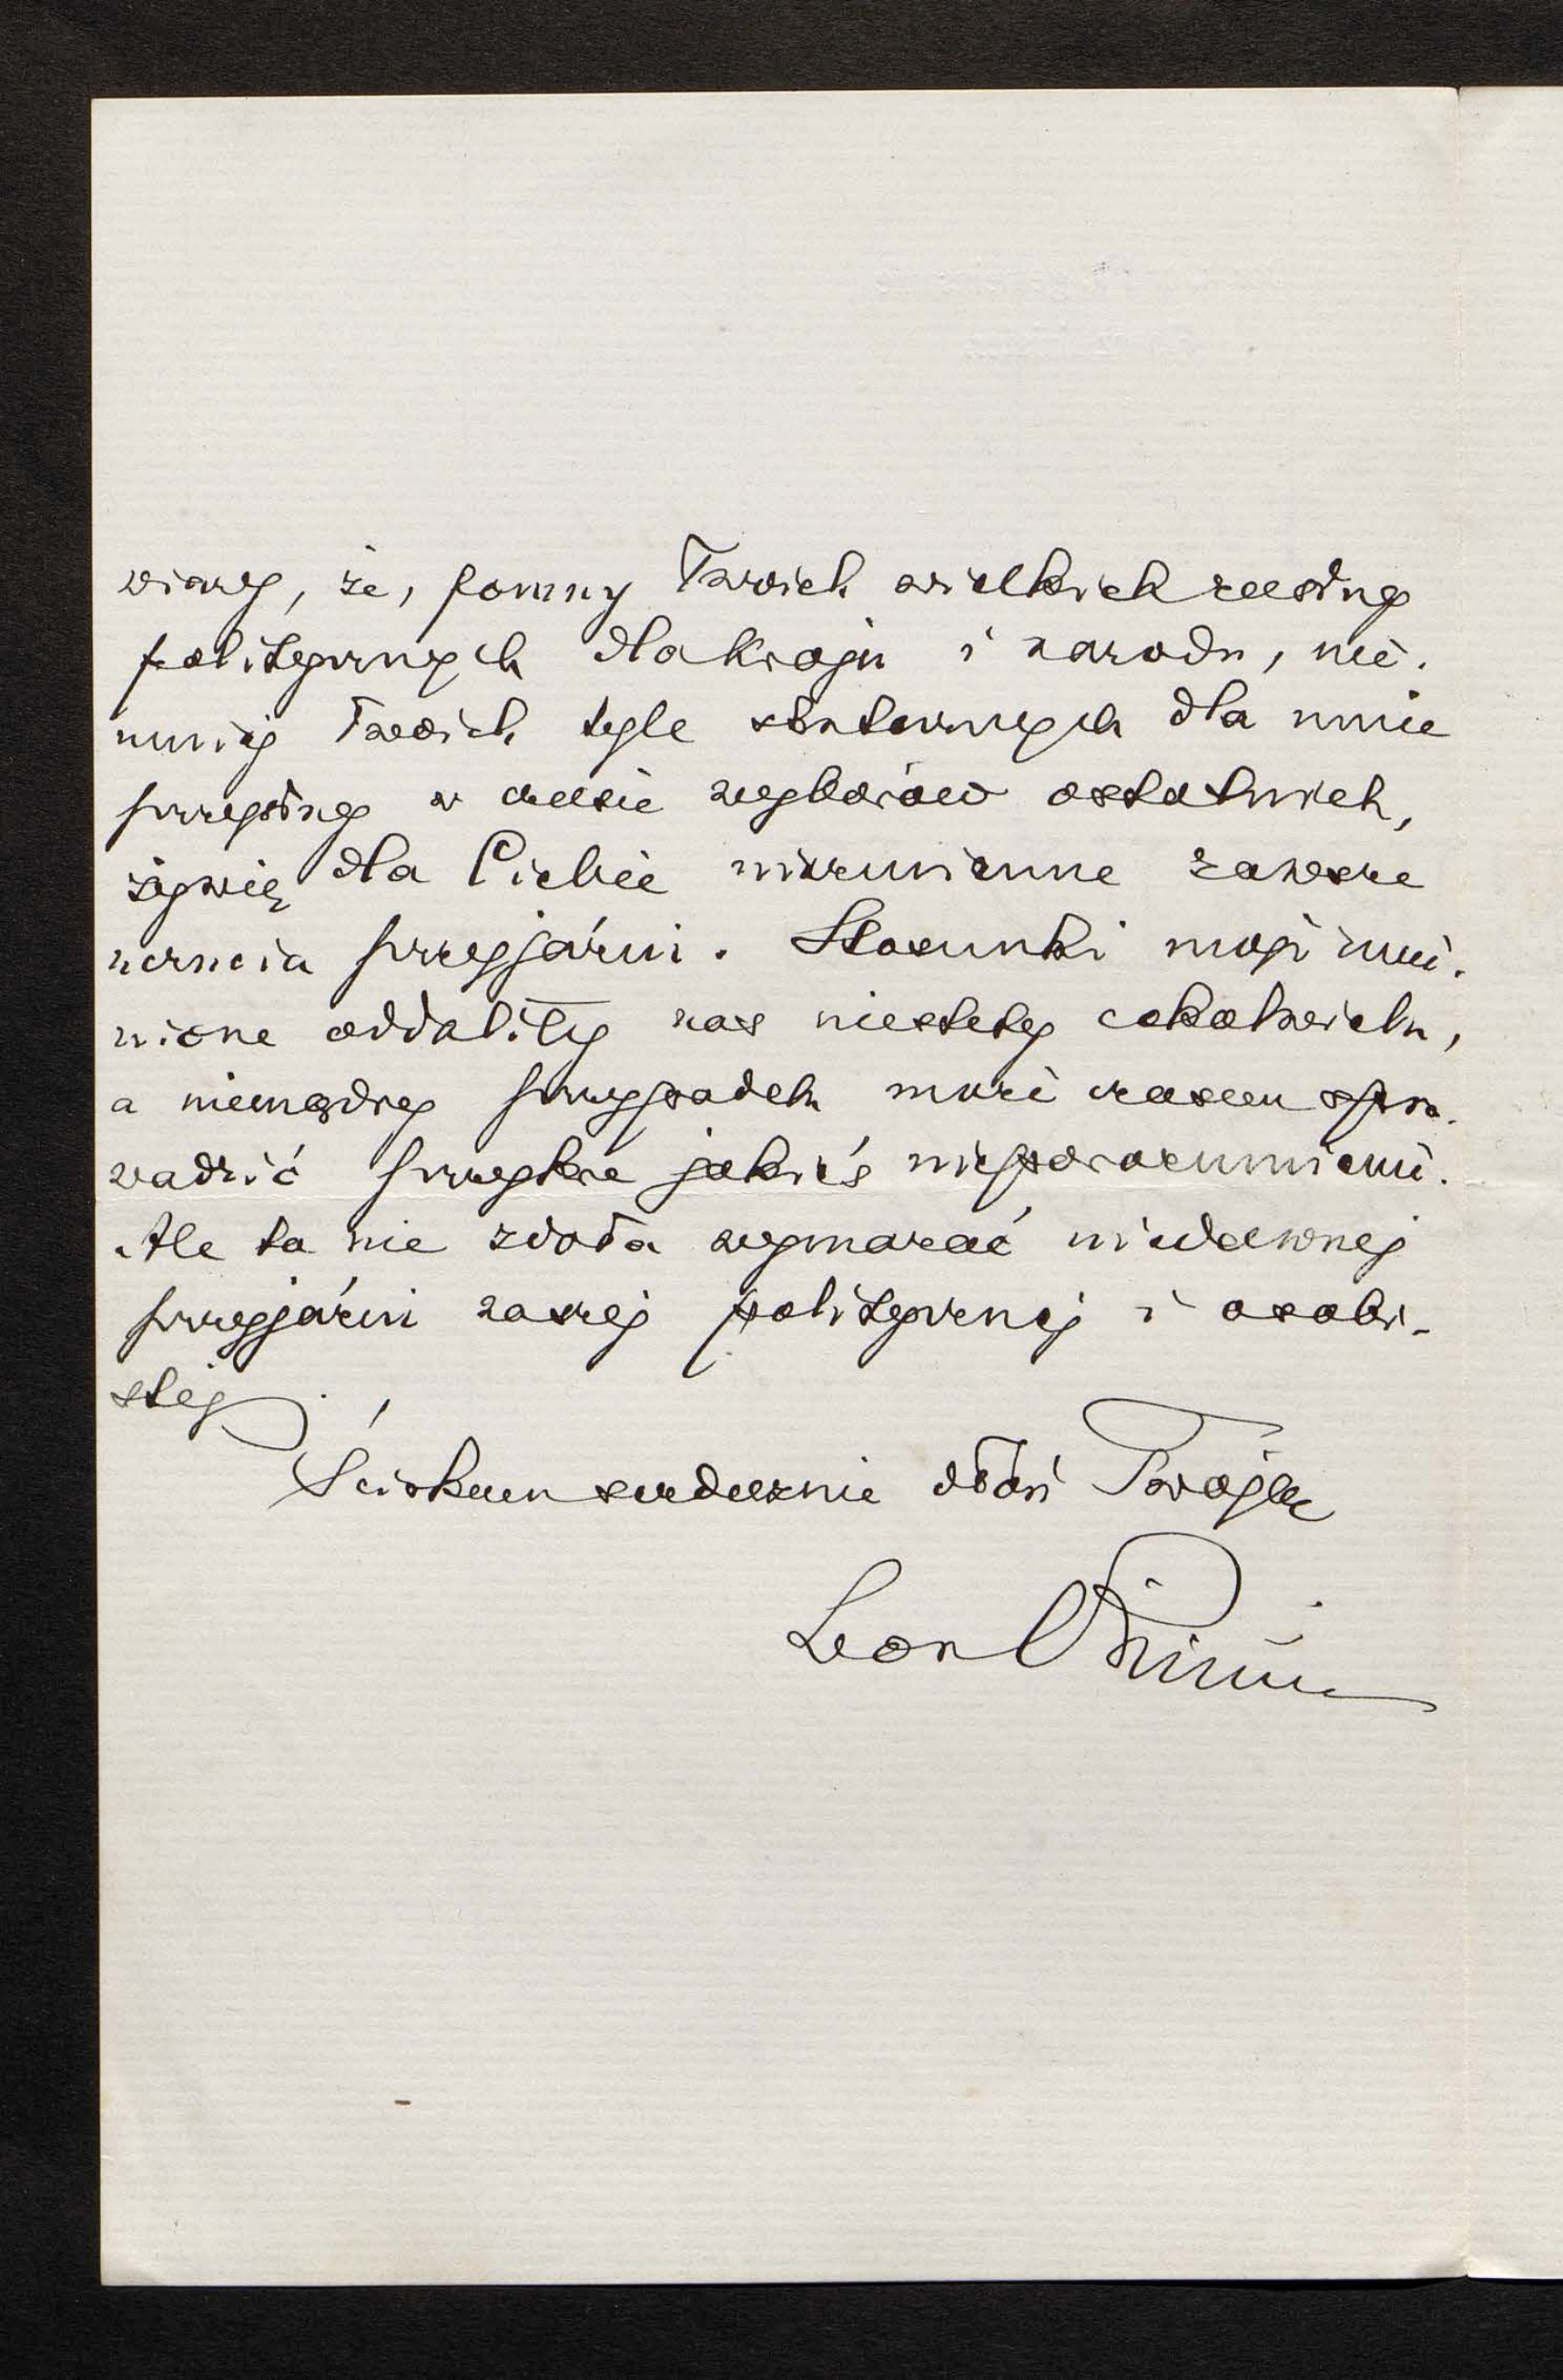 wiary, że, pomny Twoich wielkich zasług
politycznych dla kraju i narodu, nie.
mniej Twoich tyle skutecznych dla mnie
przysług w czasie wyborów ostatnich,
żywię dla Ciebie niezmienne zawsze
uczucia przyjaźni. Stosunki moje zmie.
nione oddaliły nas niestety cokolwiek,
a niemądry przypadek może czasem spro.
wadzić przykre jakieś nieporozumienie.
Ale to nie zdoła wymazać niedawnej
przyjaźni naszej politycznej i osobi-
stej.
Ściskam serdecznie dłoń Twoją
Leon Piniński